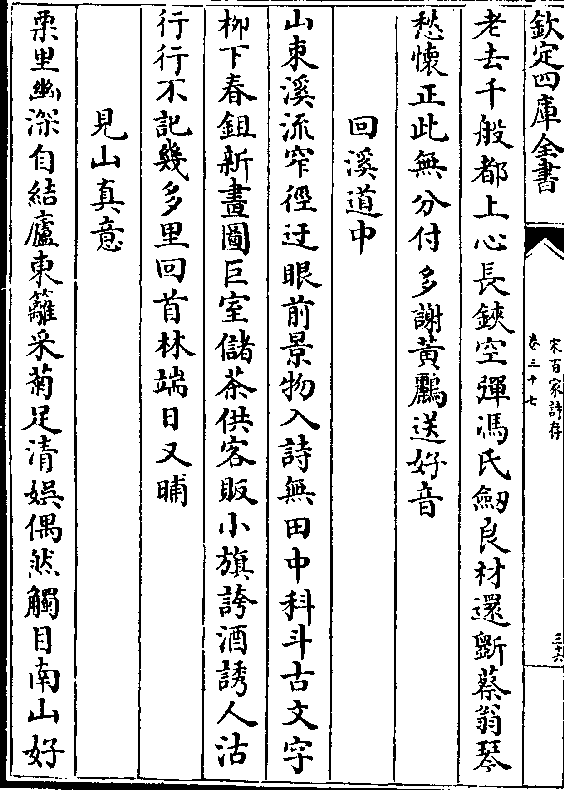 欽定四庫全書
宋百家詩存
卷三十七
三十六
老去千般都上心長鋏空彈馮氏劒良材還斲蔡翁琴
愁懷正此無分付多謝黃鸝送好音
回溪道中
山束溪流窄徑迂眼前景物入詩無田中科斗古文字
柳下春鉏新畫圖巨室儲茶供客販小旗誇酒誘人沽
行行不記幾多里回首林端日又晡
見山真意
栗里幽深自結廬東籬采菊足清娛偶然觸目南山好